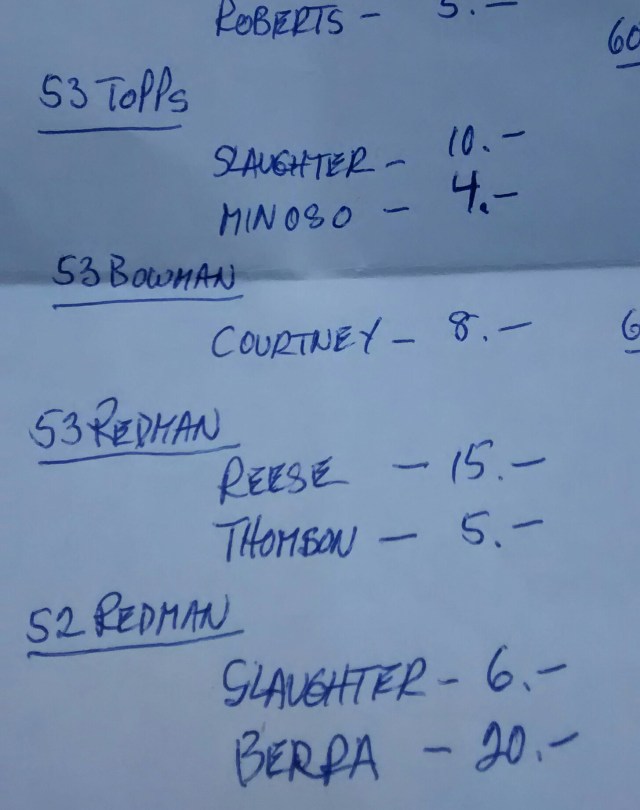 ROBERTS - 5.-
60
53 TOPPS
SLAUGHTER - 10.-
MINOSO - 4.-
53 BOWMAN
COURTNEY - 8.-
6
53 REDMAN
REESE - 15.-
THOMSON - 5.-
52 REDMAN
SLAUGHTER - 6.-
BERRA - 20.-